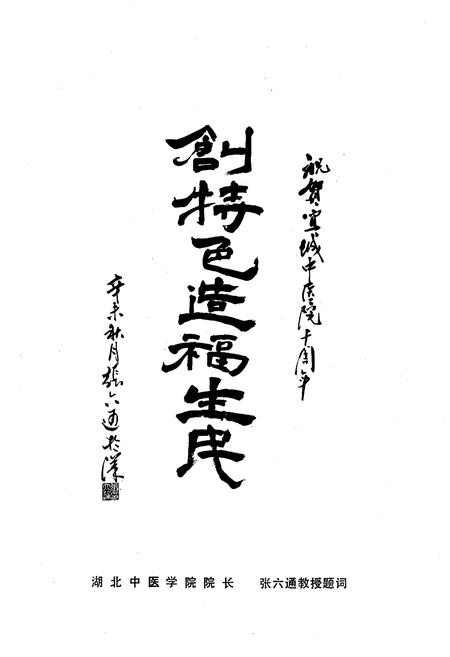 祝贺宜城中医院十周年
創特色造福生民
辛未秋月张六通於汉
湖北中医学院院长 张六通教授题词